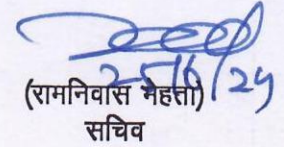 25/6/24
(रामनिवास मेहता)
सचिव